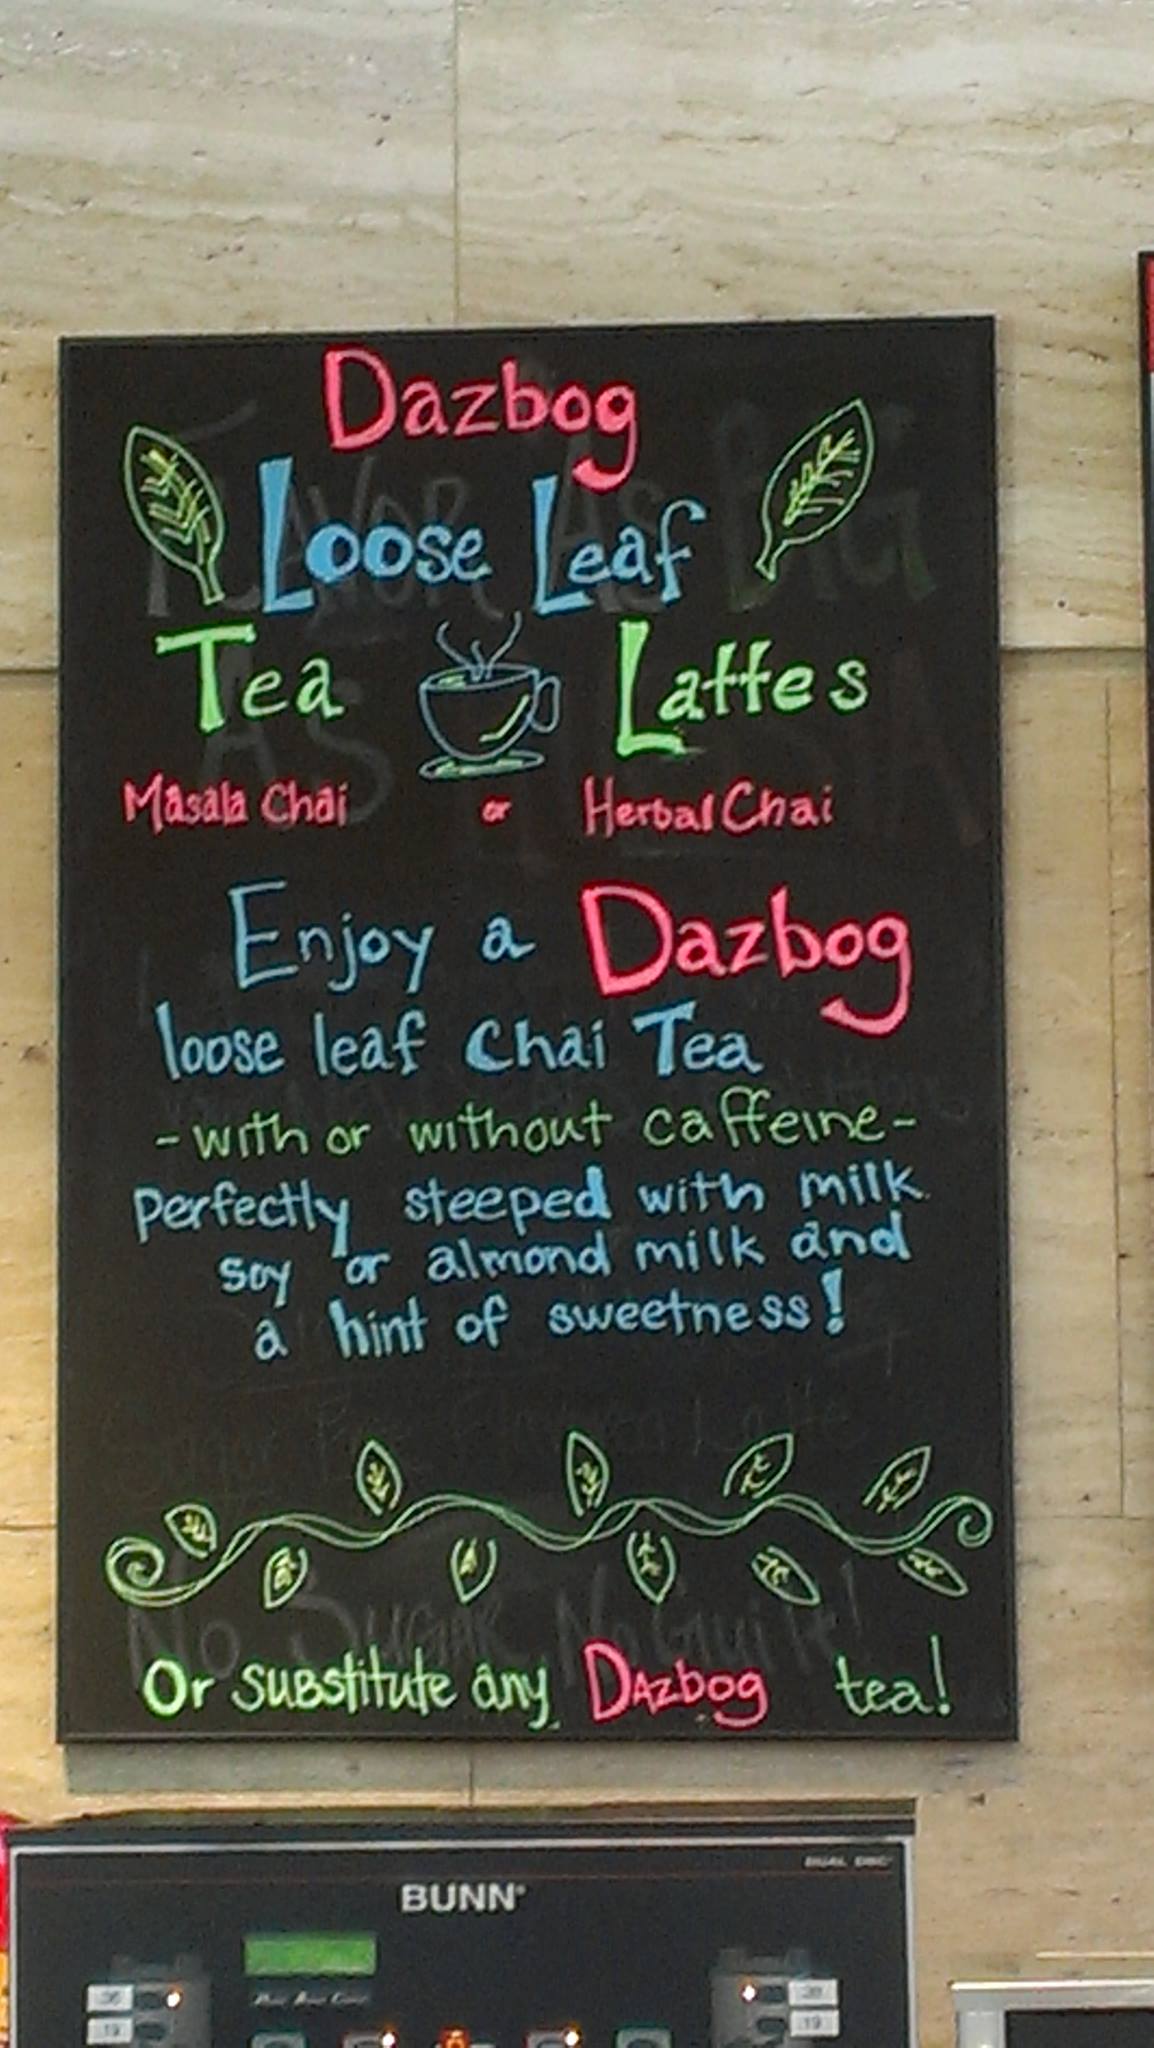 Dazbog
Loose Leaf
Tea Lattes
Masala Chai or Herbal Chai
Enjoy a Dazbog
loose leaf Chai Tea
-with or without caffeine-
Perfectly steeped with milk
soy or almond milk and
a hint of sweetness!
No Sugar, No Guilt!
Or substitute any Dazbog tea!
BUNN®